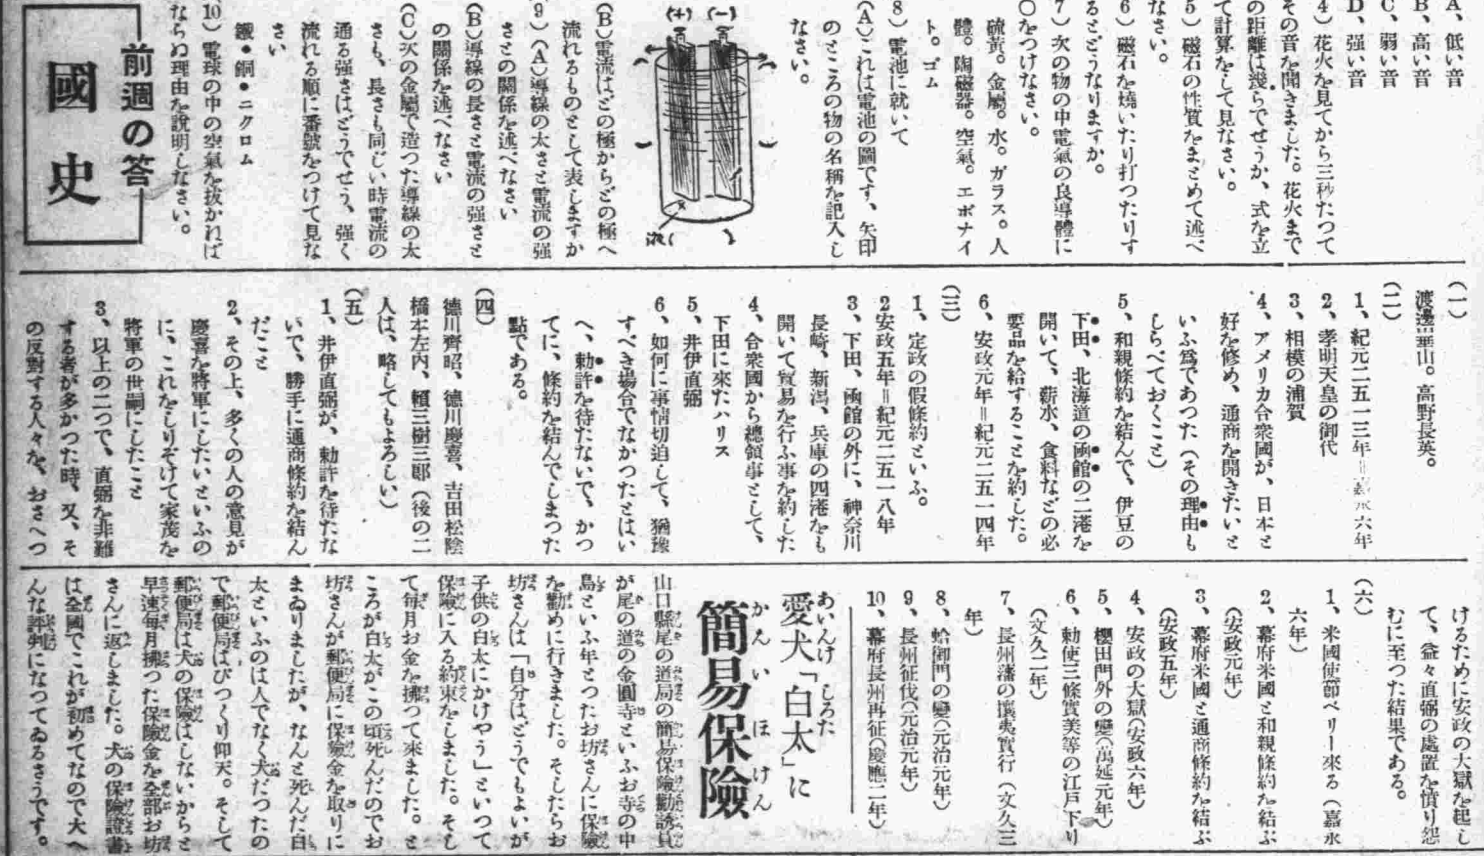 A、低い音
B、高い音
C、弱い音
D、強い音
4）花火を見てから三秒たつて
その音を聞きました。花火まで
の距離は幾らでせうか、式を立
て計算をして見なさい。
5）磁石の性質をまとめて述べ
なさい。
6）磁石を燒いたり打つたりす
るとどうなりますか。
7）次の物の中電氣の良導體に
〇をつけなさい。
硫黄。金屬。水。ガラス。人
體。陶磁器。空氣。エボナイ
ト。ゴム
8）電池に就いて
（A）これは電池の圖です、矢印
のところの物の名稱を記入し
なさい。
(+) (-)
液(
（B）電流はどの極からどの極へ
流れるものとして表しますか
9）（A）導線の太さと電流の强
さとの關係を述べなさい
（B）導線の長さと電流の强さと
の關係を述べなさい
（C）次の金屬で造つた導線の太
さも、長さも同じい時電流の
通る强さはどうでせう、强く
流れる順に番號をつけて見な
さい
鐵●銅●ニクロム
10）電球の中の空氣を抜かねば
ならぬ理由を說明しなさい。
前週の答
國史
（一）
渡邊崋山。高野長英。
（二）
1、紀元二五一三年＝嘉永六年
2、孝明天皇の御代
3、相模の浦賀
4、アメリカ合衆國が、日本と
好を修め、通商を開きたいと
いふ爲であつた（その理由も
しらべておくこと）
5、和親條約を結んで、伊豆の
下田、北海道の函館の二港を
開いて、薪水、食料などの必
要品を給することを約した。
6、安政元年＝紀元二五一四年
（三）
1、定政の假條約といふ。
2安政五年＝紀元二五一八年
3、下田、函館の外に、神奈川
長崎、新潟、兵庫の四港をも
開いて貿易を行ふ事を約した
4、合衆國から總領事として、
下田に來たハリス
5、井伊直弼
6、如何に事情切迫して、猶豫
すべき場合でなかつたとはい
へ、勅許を待たないで、かつ
てに、條約を結んでしまつた
點である。
（四）
德川齊昭、德川慶喜、吉田松陰
橋本左內、賴三樹三郎（後の二
人は、略してもよろしい）
（五）
1、井伊直弼が、勅許を待たな
いで、勝手に通商條約を結ん
だこと
2、その上、多くの人の意見が
慶喜を將軍にしたいといふの
に、これをしりぞけて家茂を
將軍の世嗣にしたこと
3、以上の二つで、直弼を非難
する者が多かつた時、又、そ
の反對する人々を、おさへつ
けるために安政の大獄を起し
て、益々直弼の處置を憤り怨
むに至つた結果である。
（六）
1、米國使節ペリー來る（嘉永
六年）
2、幕府米國と和親條約を結ぶ
（安政元年）
3、幕府米國と通商條約を結ぶ
（安政五年）
4、安政の大獄（安政六年）
5、櫻田門外の變（萬延元年）
6、勅使三條實美等の江戶下り
（文久二年）
7、長州藩の攘夷實行（文久三
年）
8、蛤御門の變（元治元年）
9、長州征伐（元治元年）
10、幕府長州再征（慶應二年）
愛犬「白太」に
あいけん しろた
簡易保險
かんいほけん
山口縣尾の道局の簡易保險勸誘員
が尾の道の金圓寺といふお寺の中
島といふ年とつたお坊さんに保險
を勸めに行きました。そしたらお
坊さんは「自分はどうでもよいが
子供の白太にかけやう」といつて
保險に入る約束をしました。そし
て毎月お金を拂つて來ました。と
ころが白太がこの頃死んだのでお
坊さんが郵便局に保險金を取りに
まゐりましたが、なんと死んだ白
太といふのは人でなく犬だつたの
で郵便局はびつくり仰天。そして
郵便局は犬の保險はしないからと
早速毎月拂つた保險金を全部お坊
さんに返しました。犬の保險證書
は全國でこれが初めてなので大へ
んな評判になつてゐるさうです。